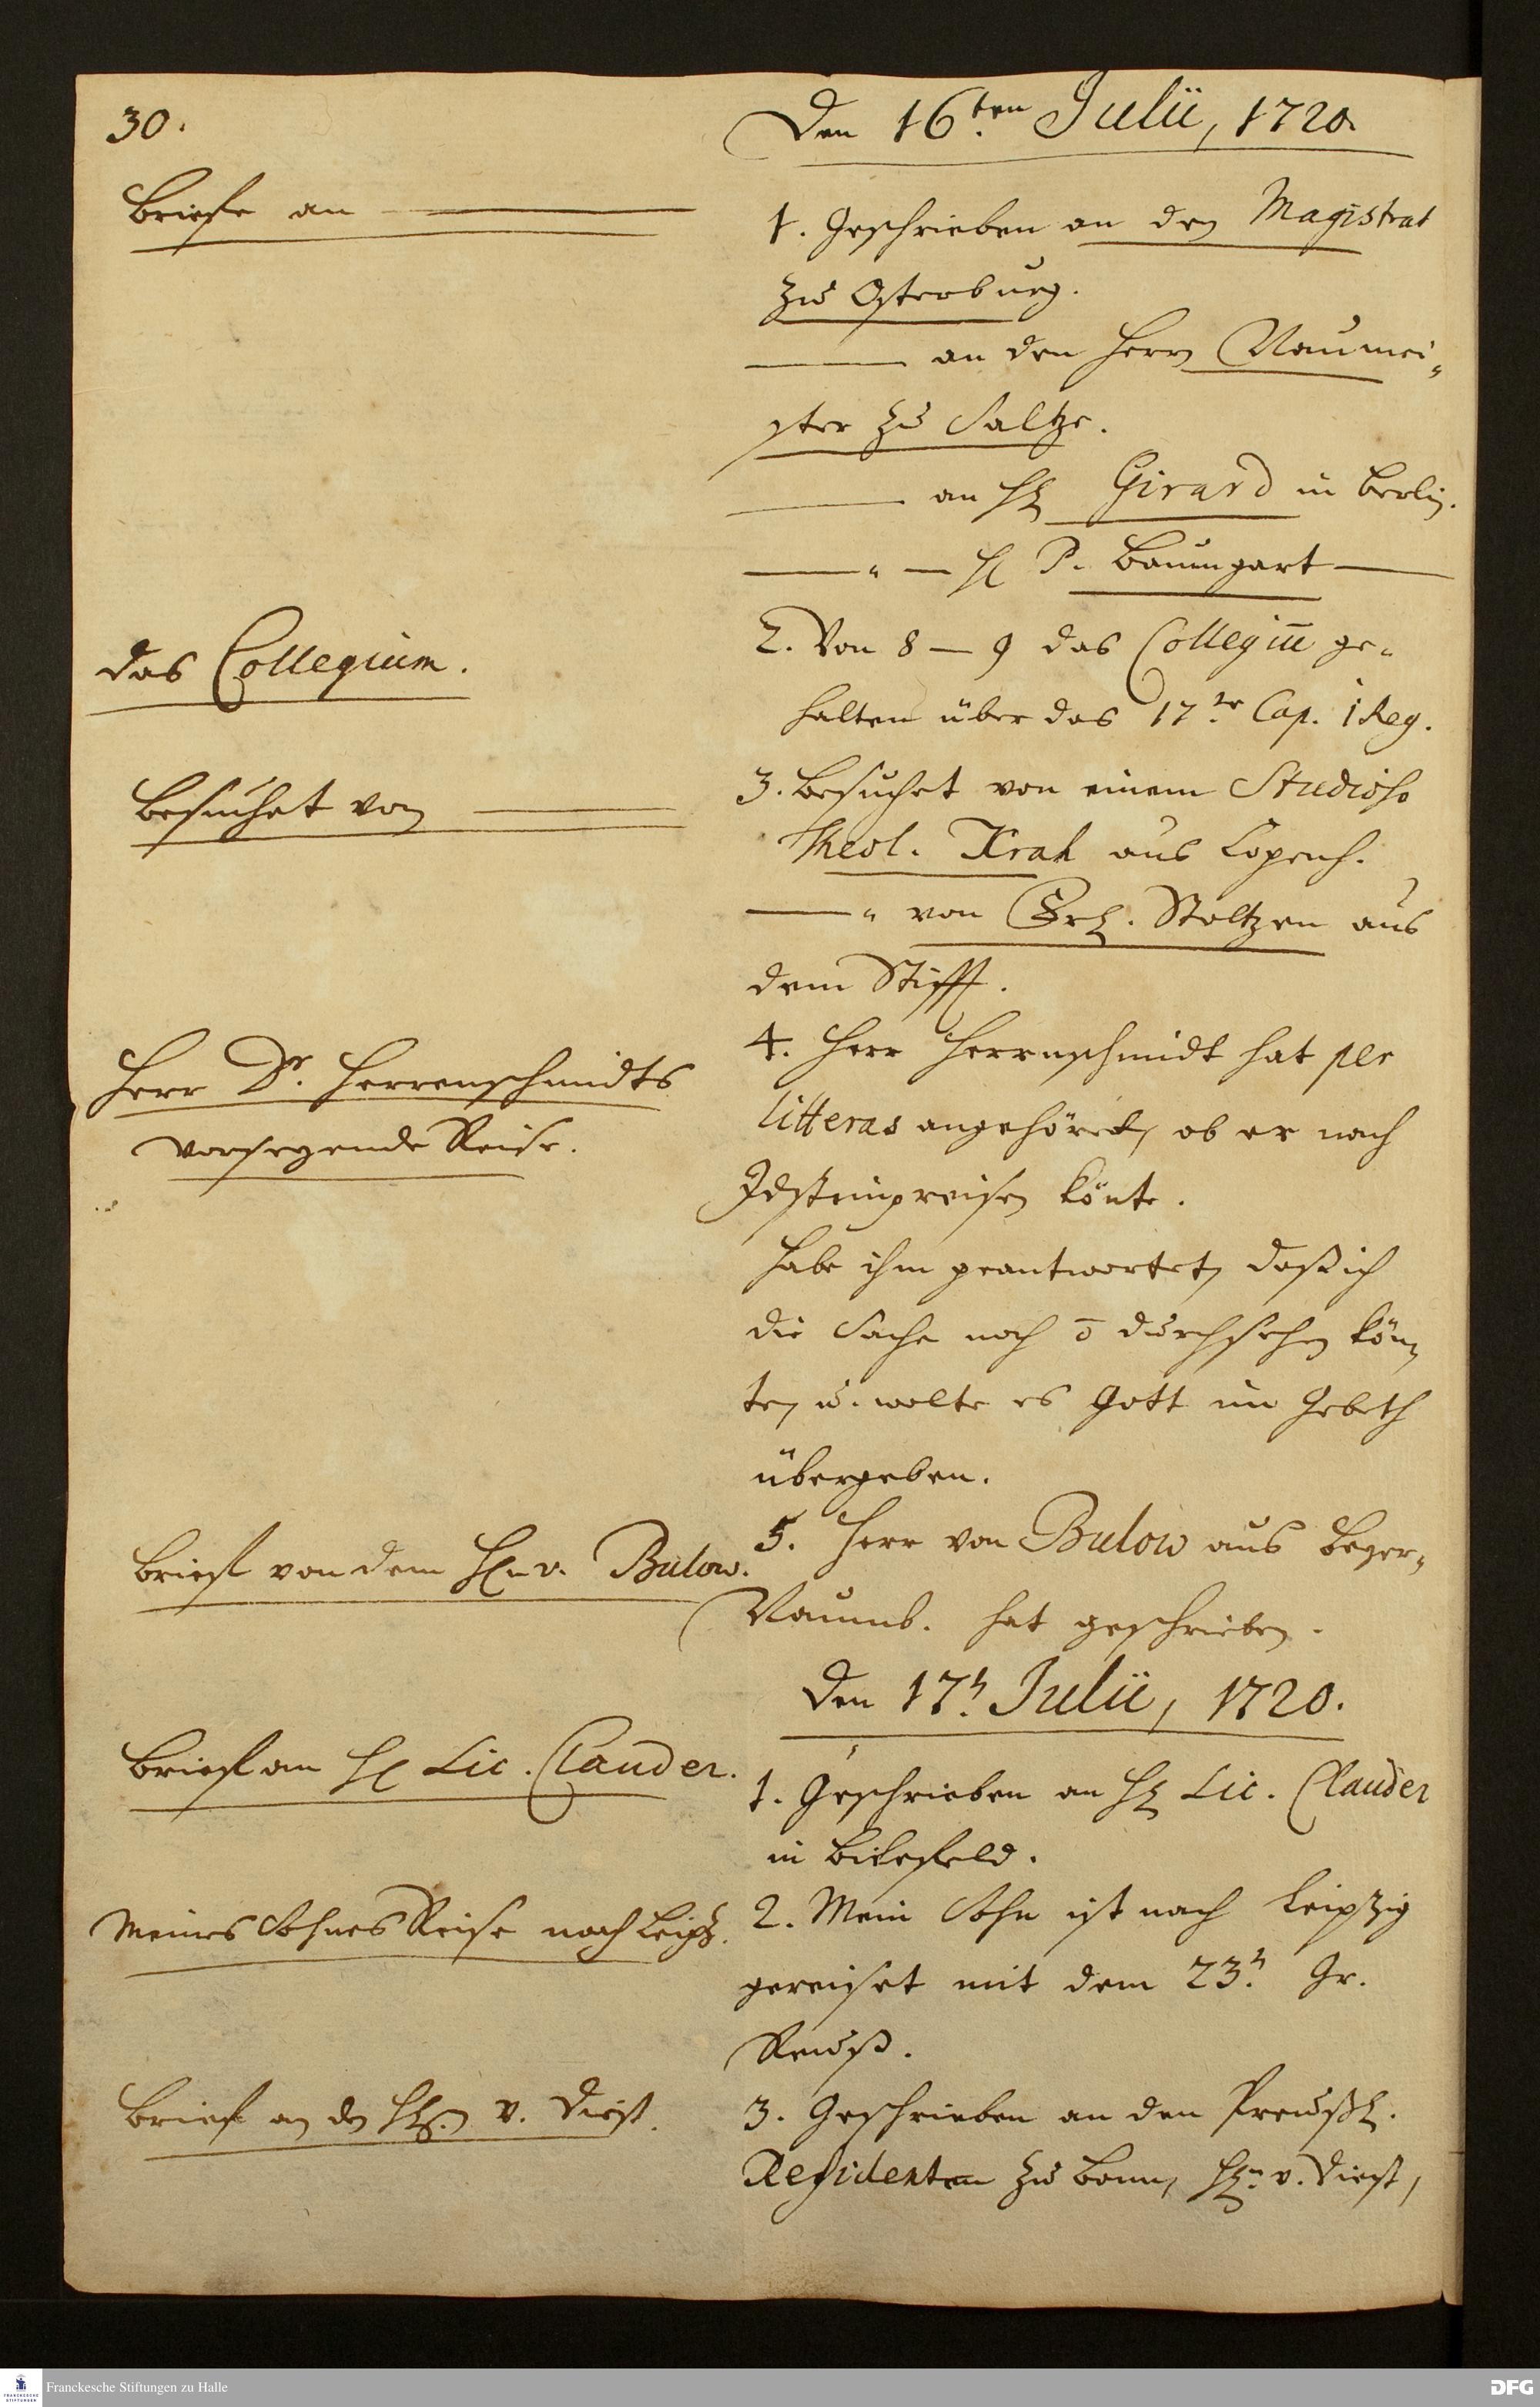 30.
Den 16ten Julii, 1720.
Briefe an
1. Geschrieben an den Magistrat
zu Osterburg.
an den Herrn Naumei-
ster zu Saltze.
an H. Girard in Berlin.
" — H. P. Baumgart
das Collegium.
2. Von 8 — 9 das Collegiū ge-
halten über das 17te Cap. 1 Reg.
Besuchet von
3. Besuchet von einem Studioso
Theol. Krah aus Copenh.
" von Stoltzen aus
dem Stifft.
Herr Dr. Herrenschmidts
vorseyende Reise.
4. Herr Herrnschmidt hat per
litteras angehöret, ob er nach
Idstein reisen könte.
Habe ihm geantwortet, daß ich
die Sache noch ō durchsehen kön-
te, u. wolte es Gott im Gebeth
übergeben.
Brieff von dem Hn v. Bulow.
5. Herr von Bulow aus Beyer-
Naumb. hat geschrieben.
Den 17t. Julii, 1720.
Brieff an H. Lic. Clauder.
1. Geschrieben an H. Lic. Clauder
in Bilefeld.
Meines Sohnes Reise nach Leipz.
2. Mein Sohn ist nach Leipzig
gereiset mit dem 23t. Gr.
Reuß.
Brieff an den Hn. v. Diest.
3. Geschrieben an den Preußl.
Residenten zu Bonn, Hn. v. Diest,
Franckesche Stiftungen zu Halle
DFG